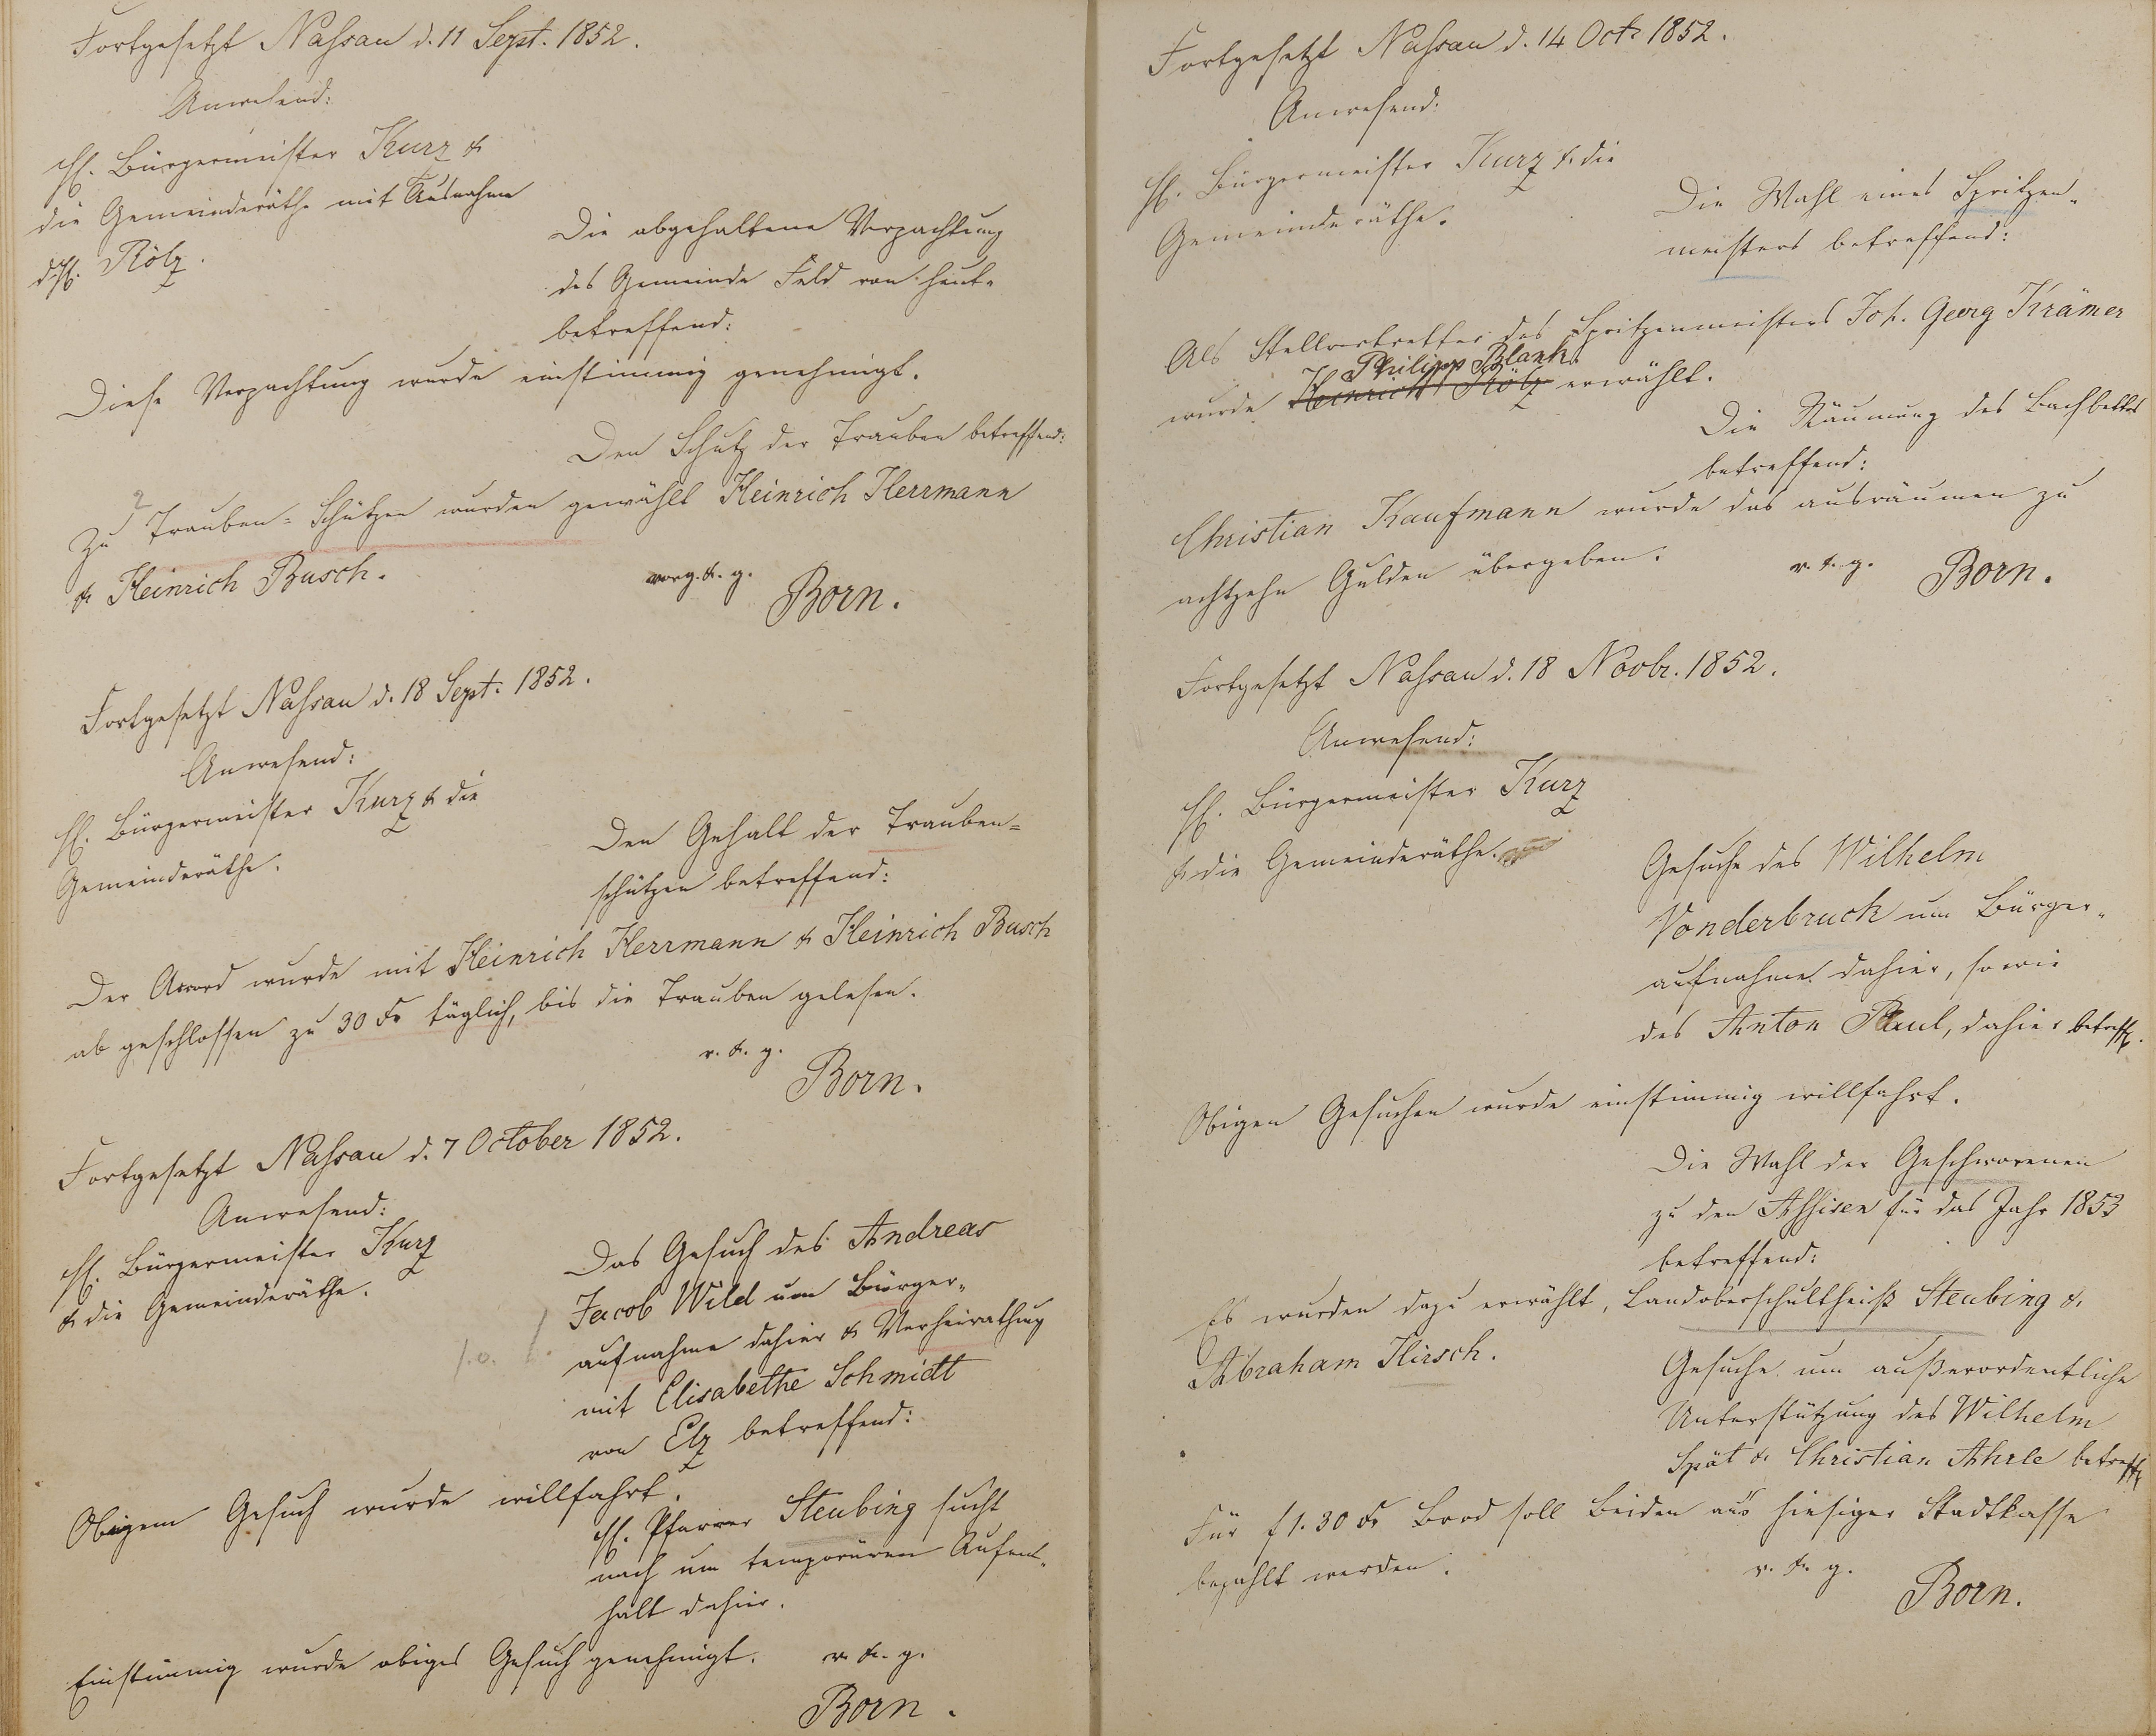 Fortgesetzt Nassau d. 11 Sept. 1852.
Anwesend:
H. Bürgermeister Kurz &
die Gemeinderäthe mit Ausnahme
d. H. Rölz.
Die abgehaltene Verpachtung
des Gemeinde Feld von heute
betreffend:
Diese Verpachtung wurde einstimmig genehmigt.
Den Schutz der Trauben betreffend:
Zu 2 Trauben-Schützen wurden gewählt Heinrich Herrmann
& Heinrich Busch.
vorg. & g.
Born.
Fortgesetzt Nassau d. 18 Sept. 1852.
Anwesend:
H. Bürgermeister Kurz & die
Gemeinderäthe.
Den Gehalt der Trauben=
schützen betreffend:
Der Accord wurde mit Heinrich Herrmann & Heinrich Busch
ab geschlossen zu 30 Xr täglich, bis die Trauben gelesen.
v. & g.
Born.
Fortgesetzt Nassau d. 7 October 1852.
Anwesend:
H. Bürgermeister Kurz
& die Gemeinderäthe.
Das Gesuch des Andreas
Jacob Wild um Bürger-
aufnahme dahier & Verheirathung
mit Elisabethe Schmidt
von Elz betreffend:
Obigem Gesuch wurde willfahrt.
H. Pfarrer Steubing sucht
nach um temporären Aufent-
halt dahier.
Einstimmig wurde obiges Gesuch genehmigt.
v. & g.
Born.
Fortgesetzt Nassau d. 14 Octr 1852.
Anwesend:
H. Bürgermeister Kurz & die
Gemeinderäthe.
Die Wahl eines Spritzen-
meisters betreffend:
Als Stellvertretter des Spritzenmeisters Joh. Georg Krämer
Philipp Blank
wurde Heinrich Rölz erwählt.
Die Räumung des Bachbettes
betreffend:
Christian Kaufmann wurde das ausräumen zu
achtzehn Gulden übergeben.
v. & g.
Born.
Fortgesetzt Nassau d. 18 Novbr. 1852.
Anwesend:
H. Bürgermeister Kurz
& die Gemeinderäthe.
Gesuche des Wilhelm
Vonderbruck um Bürger-
aufnahme dahier, sowie
des Anton Paul, dahier betreff.
Obigen Gesuchen wurde einstimmig willfahrt.
Die Wahl der Geschworenen
zu den Assisen für das Jahr 1853
betreffend:
Es wurden dazu erwählt, Landoberschultheiß Steubing &
Abraham Hirsch.
Gesuche um außerordentliche
Unterstützung des Wilhelm
Spät & Christian Ahrle betreff.
Für f 1. 30 Xr Brod soll beiden aus hiesiger Stadtkasse
bezahlt werden.
v. & g.
Born.